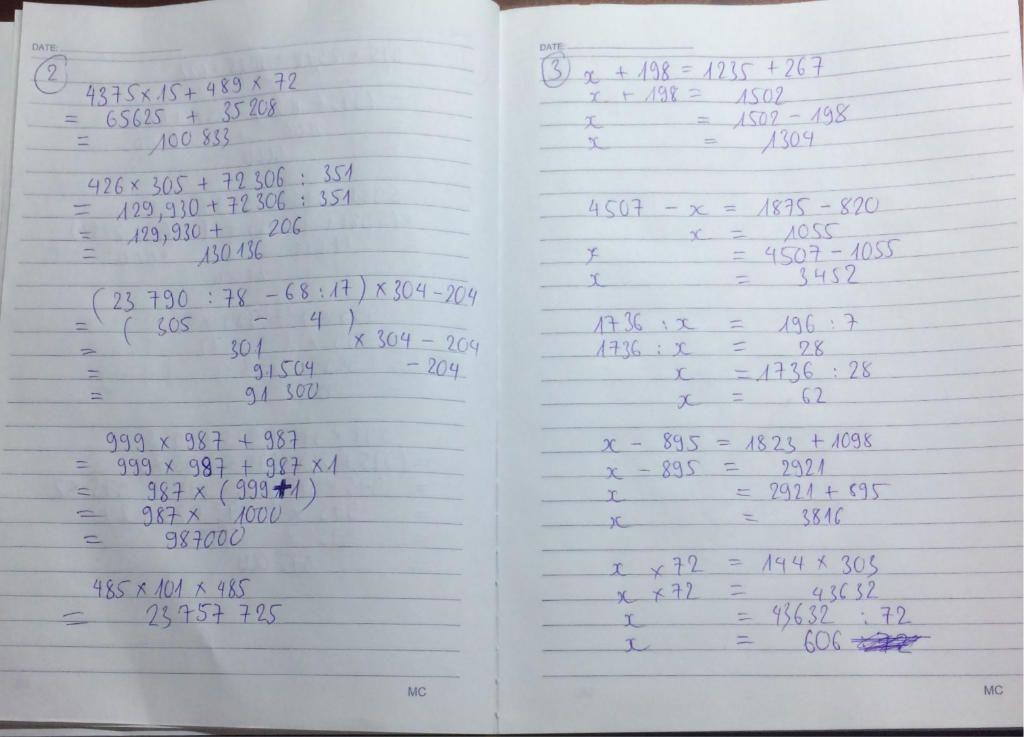 DATE:
2
4375 × 15 + 489 × 72
= 65625 + 35208
= 100 833
426 × 305 + 72306 : 351
= 129,930 + 72306 : 351
= 129,930 + 206
= 130136
(23 790 : 78 - 68 : 17) × 304 - 204
= ( 305 - 4 )
= 301 × 304 - 204
= 91504 - 204
= 91 300
999 × 987 + 987
= 999 × 987 + 987 × 1
= 987 × (999 + 1)
= 987 × 1000
= 987000
485 × 101 × 485
= 23 757 725
MC
DATE:
3
x + 198 = 1235 + 267
x + 198 = 1502
x = 1502 - 198
x = 1304
4507 - x = 1875 - 820
x = 1055
x = 4507 - 1055
x = 3452
1736 : x = 196 : 7
1736 : x = 28
x = 1736 : 28
x = 62
x - 895 = 1823 + 1098
x - 895 = 2921
x = 2921 + 895
x = 3816
x × 72 = 144 × 303
x × 72 = 43632
x = 43632 : 72
x = 606
MC